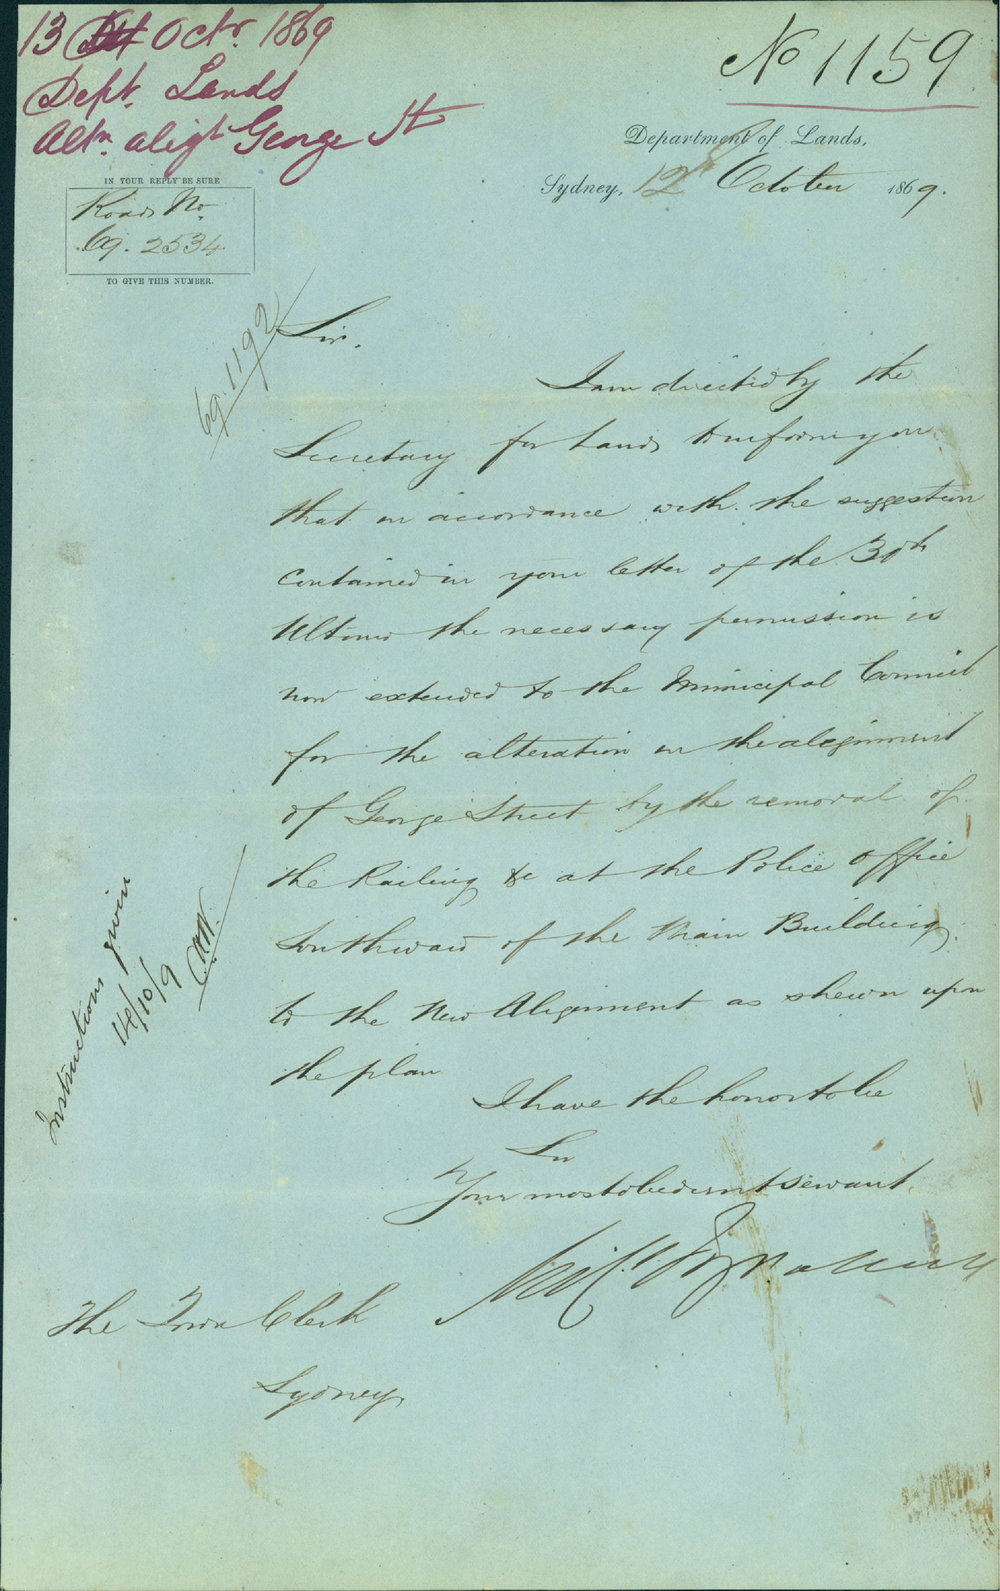 13 Octr. 1869
Dept. Lands
Altn. aligt George St
No 1159
Department of Lands,
Sydney, 12 October 1869.
IN YOUR REPLY BE SURE
Roads No.
69. 2534
TO GIVE THIS NUMBER.
69.1192
Sir,
I am directed by the
Secretary for Lands to inform you
that in accordance with the suggestion
contained in your letter of the 30th
Ultimo the necessary permission is
now extended to the Municipal Council
for the alteration in the alignment
of George Street by the removal of
the Railing &c at the Police Office
Southward of the Main Building
to the New Alignment as shewn upon
the plan
I have the honor to be
Sir
Your most obedient servant
Mich Fitzpatrick
The Town Clerk
Sydney
Instructions given
14/10/9